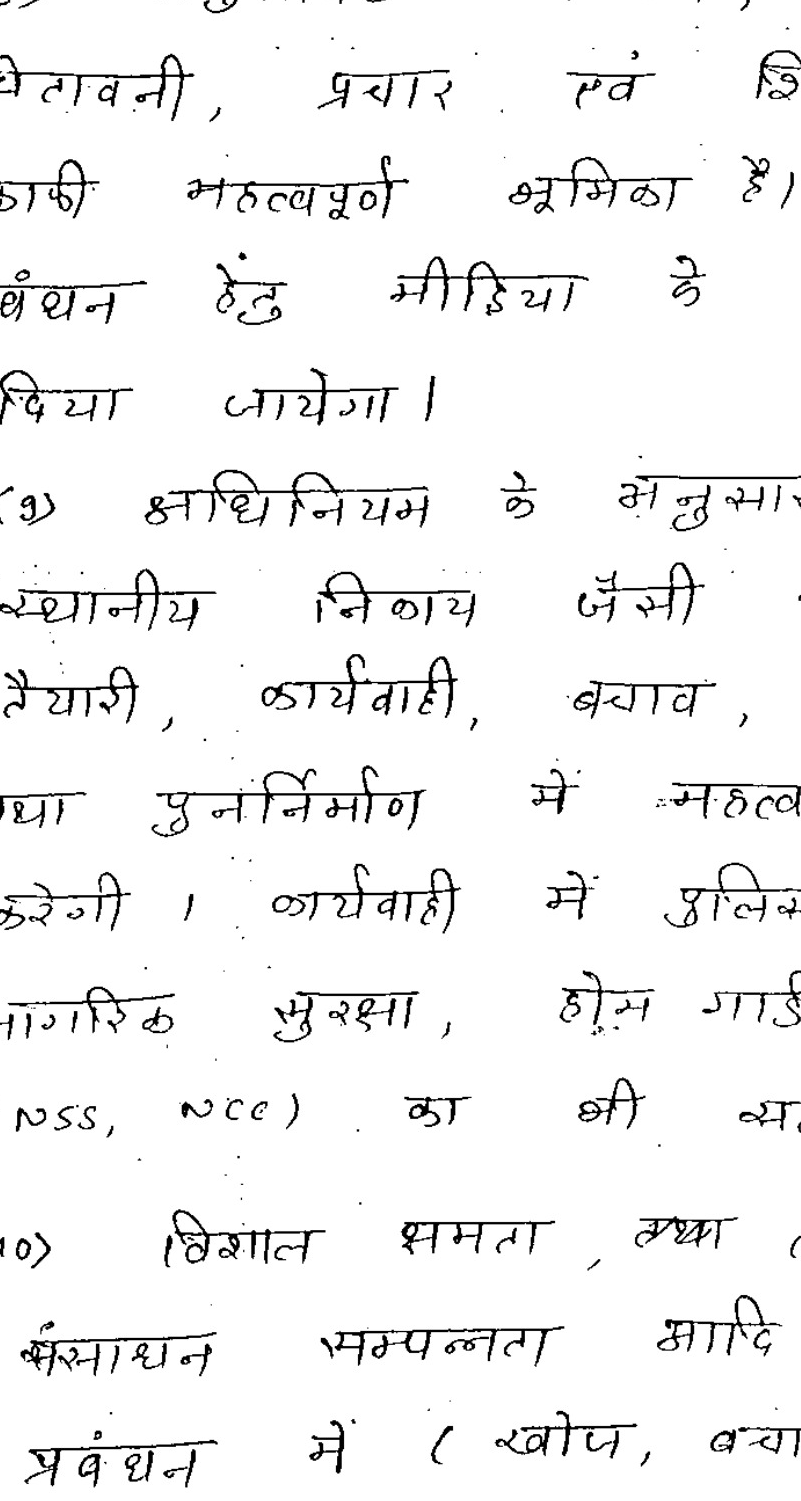 चेतावनी, प्रचार एवं
काफी महत्वपूर्ण भूमिका है।
बंधन हेतु मीडिया के
दिया जायेगा।
(9) अधिनियम के अनुसार
स्थानीय निकाय जैसी
तैयारी, कार्यवाही, बचाव,
था पुनर्निर्माण में महत्व
करेगी। कार्यवाही में पुलिस
नागरिक सुरक्षा, होम गार्ड
NSS, NCC) का भी
10) विशाल क्षमता, तथा (
संसाधन सम्पन्नता आदि
प्रबंधन में ( खोज, बचा